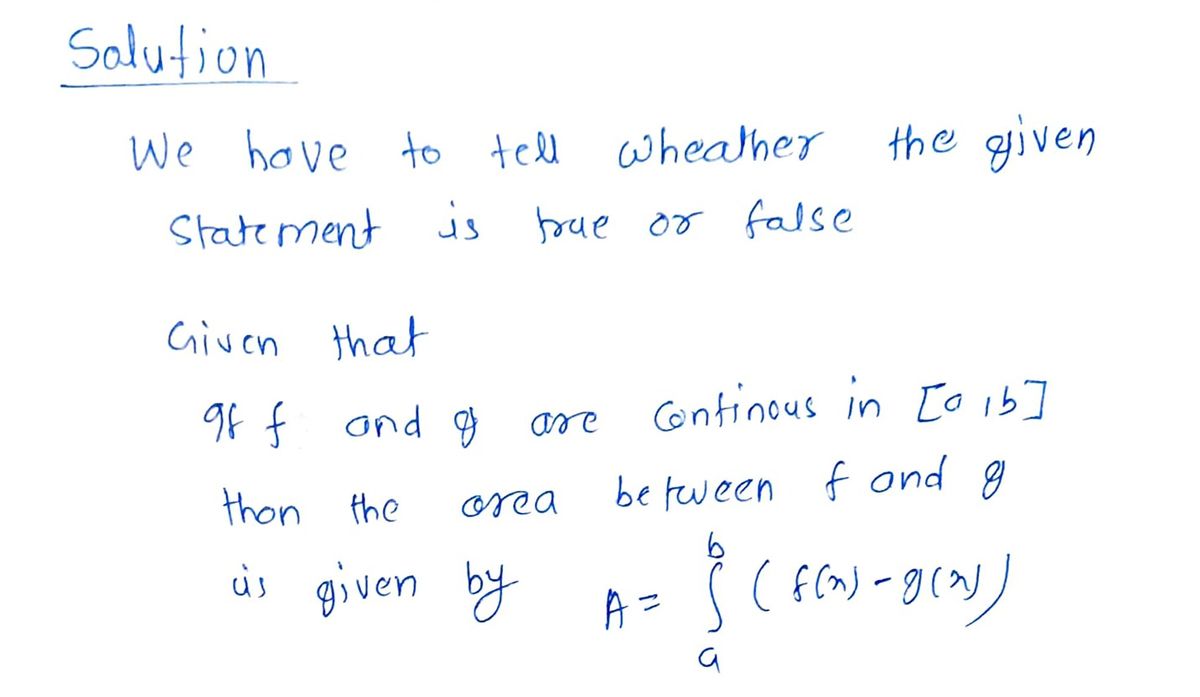 Solution
We have to tell wheather the given
Statement is true or false
Given that
If f and g are Continous in [a,b]
than the area between f and g
is given by A = ∫_a^b (f(x) - g(x))